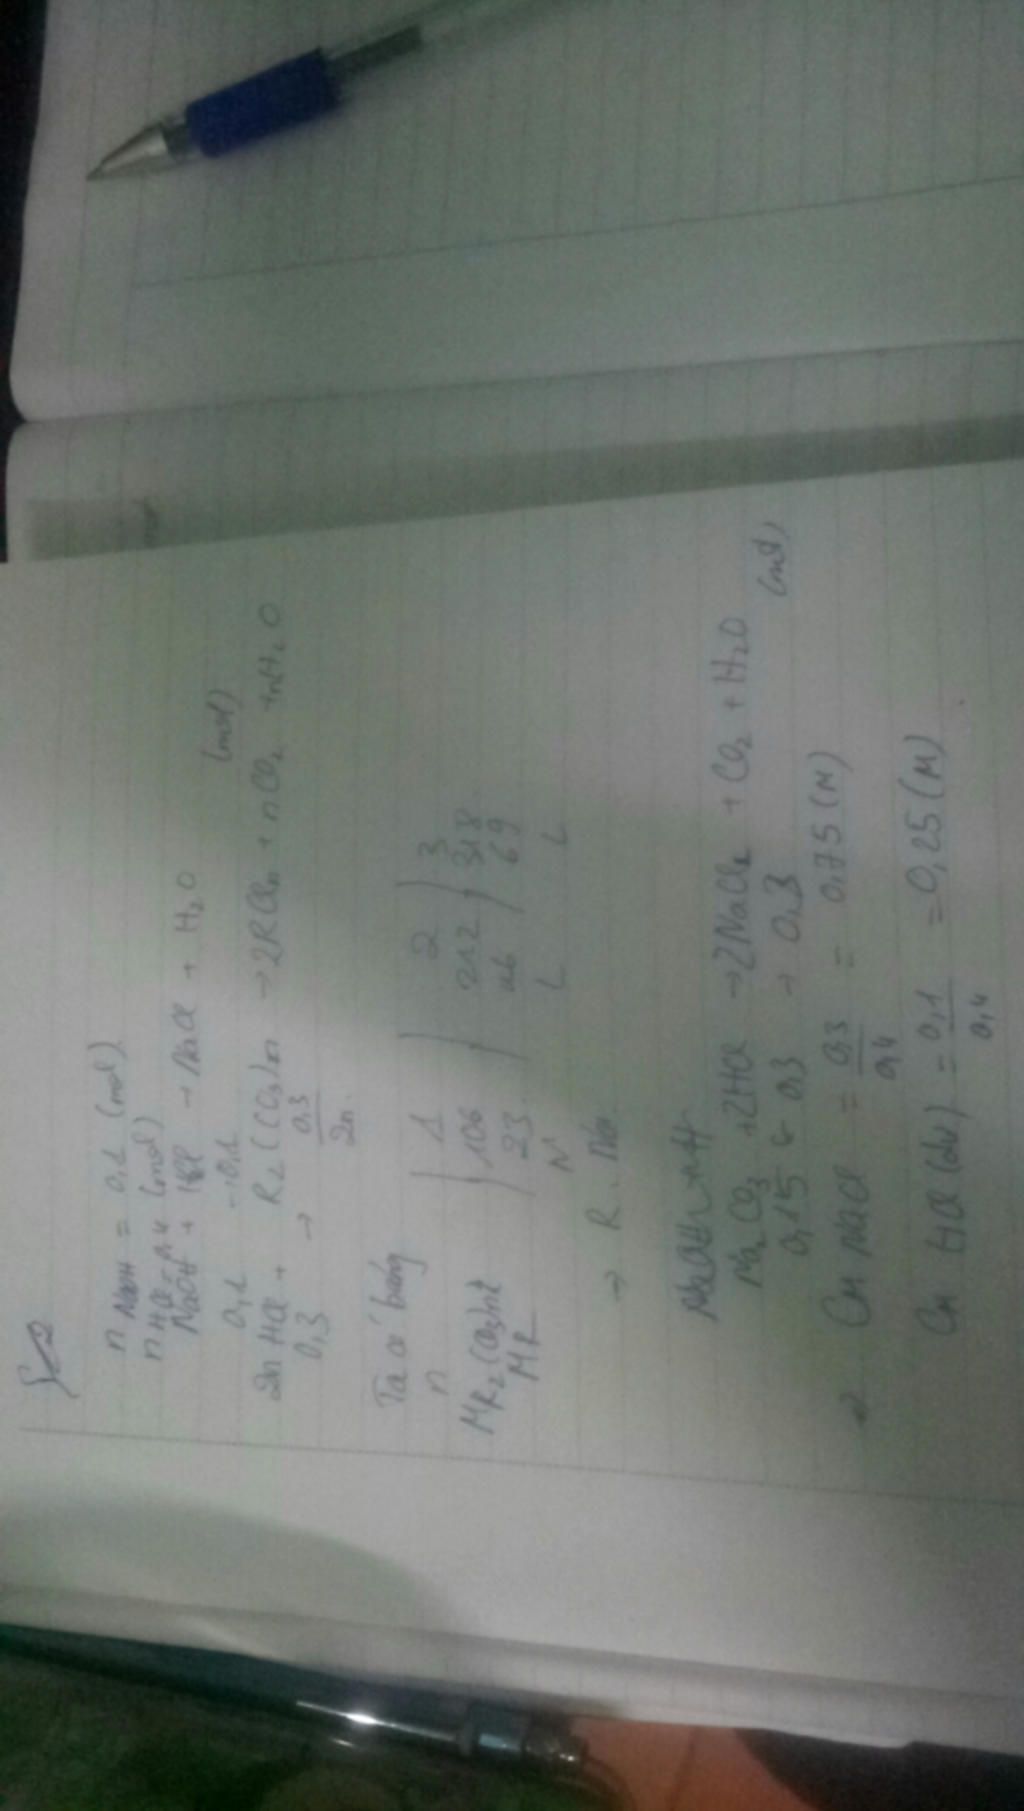 n NaOH = 0,1 (mol)
n HCl = 0,4 (mol)
NaOH + HCl → NaCl + H₂O
0,1 → 0,1 (mol)
2n HCl + R₂(CO₃)n → 2RCln + nCO₂ + nH₂O
0,3 → 0,3/2n
Ta có bảng
n | 1 | 2 | 3
MR₂(CO₃)n | 106 | 212 | 318
MR | 23 | 46 | 69
N L L
→ R. Na
Na₂CO₃ + 2HCl → 2NaCl + CO₂ + H₂O
0,15 ← 0,3 → 0,3 (mol)
→ CM NaCl = 0,3/0,4 = 0,75 (M)
CM HCl (dư) = 0,1/0,4 = 0,25 (M)